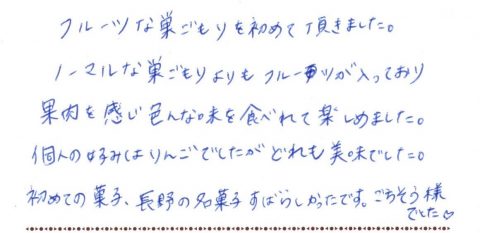 フルーツな巣ごもりを初めて頂きました。
ノーマルな巣ごもりよりもフルーツが入っており
果肉を感じ色んな味を食べれて楽しめました。
個人の好みはりんごでしたがどれも美味でした。
初めての菓子、長野の名菓子すばらしかったです。ごちそう様
でした♡